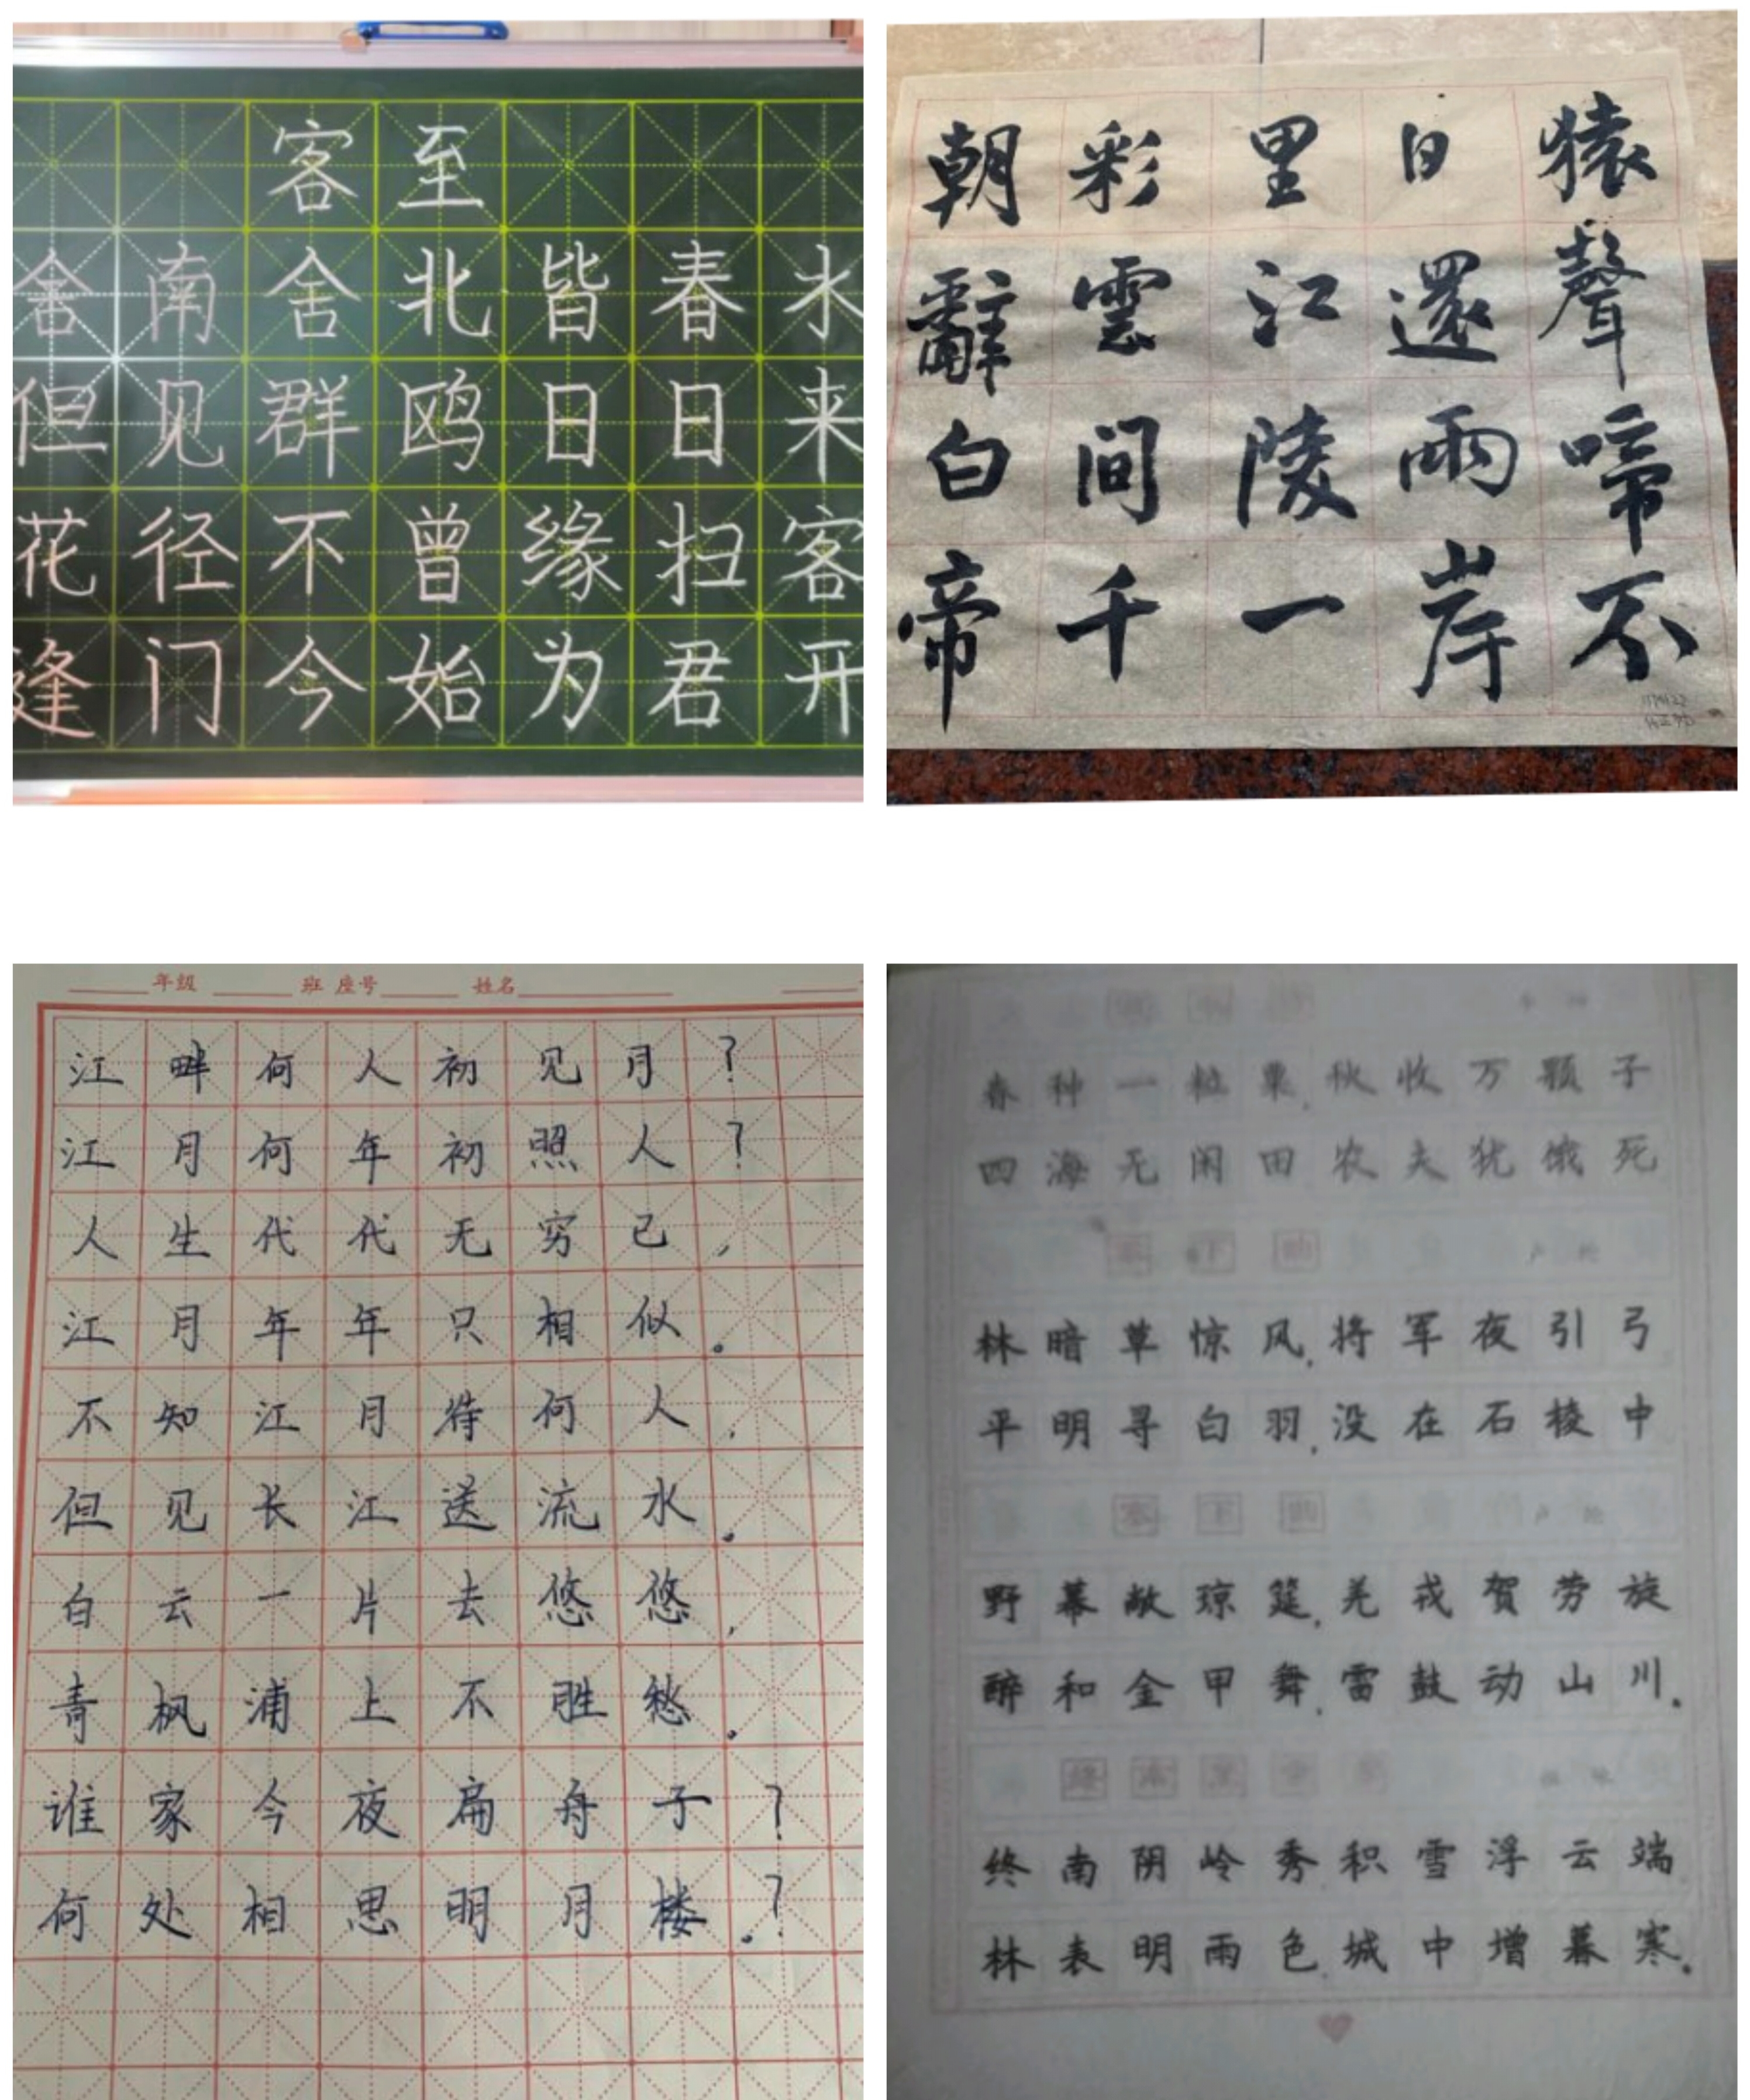 客至
舍南舍北皆春水
但见群鸥日日来
花径不曾缘扫客
缝门今始为君开
朝辭白帝
彩雲間千
里江陵一
日還兩岸
猿聲啼不
年级 班 座号 姓名
江畔何人初见月?
江月何年初照人?
人生代代无穷已,
江月年年只相似。
不知江月待何人,
但见长江送流水。
白云一片去悠悠,
青枫浦上不胜愁。
谁家今夜扁舟子?
何处相思明月楼。?
春种一粒粟,秋收万颗子
四海无闲田农夫犹饿死
林暗草惊风,将军夜引弓
平明寻白羽,没在石棱中
野幕敞琼筵,羌戎贺劳旋
醉和金甲舞,雷鼓动山川。
终南阴岭秀积雪浮云端
林表明雨色,城中增暮寒。